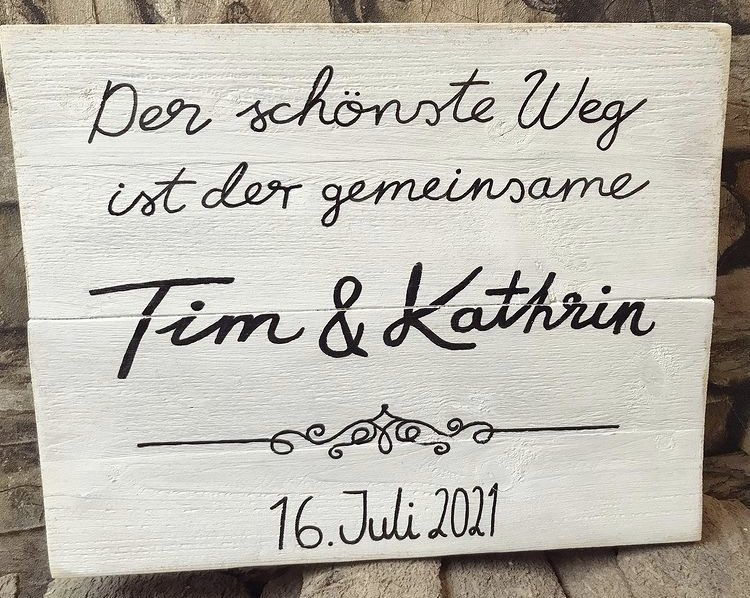 Der schönste Weg
ist der gemeinsame
Tim & Kathrin
16. Juli 2021